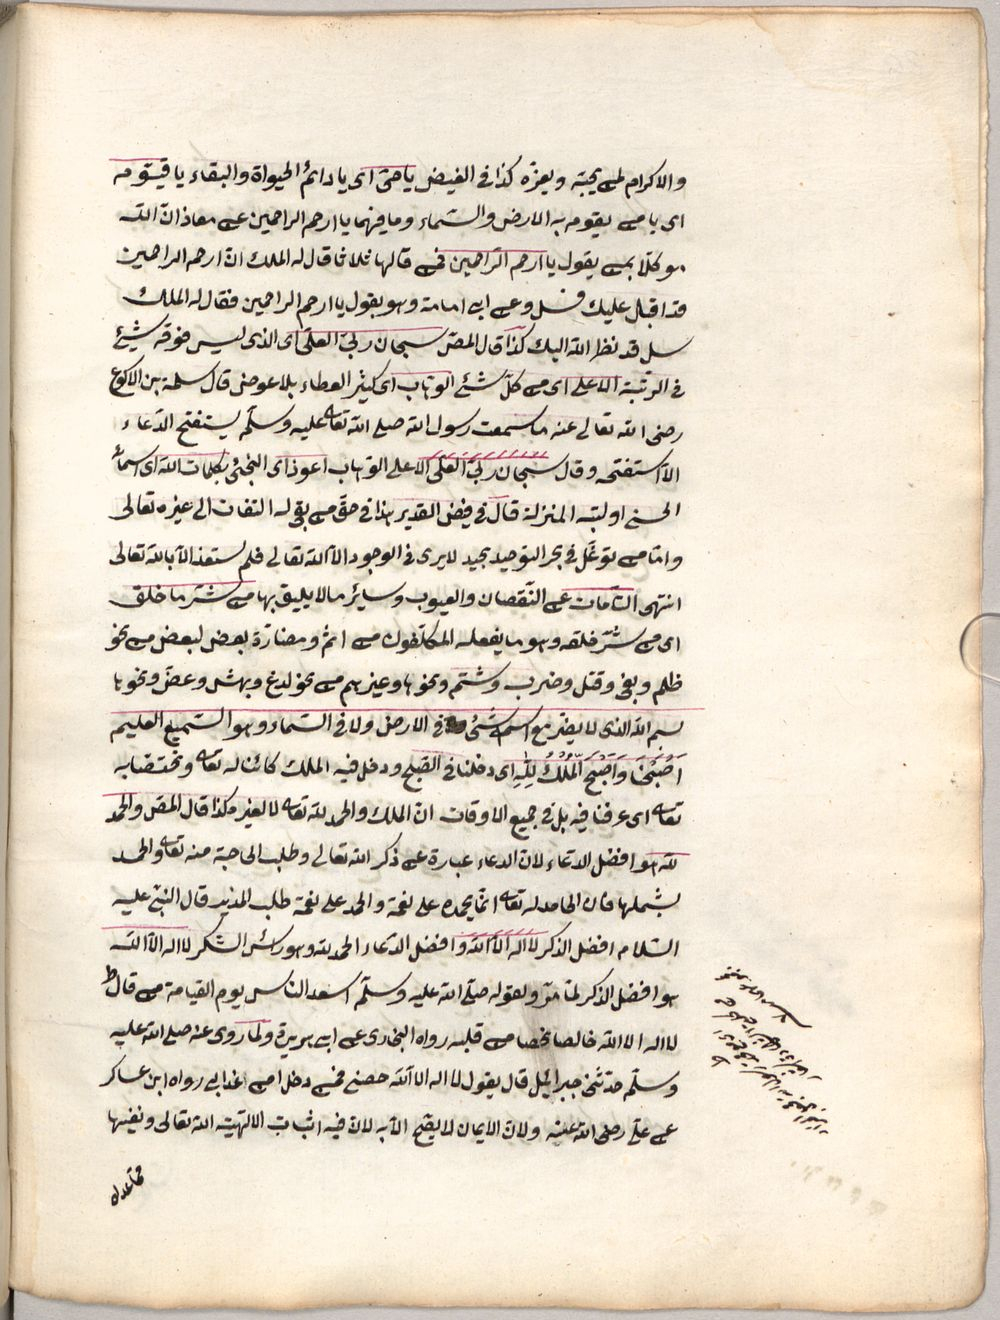 والاكرام لمن يحبه ويعزه كذا في الفيض يا حى اى يا دائم الحيوة والبقاء يا قيوم
اى يا من يقوم به الارض والسماء وما فيهما يا ارحم الراحمين عن معاذ ان الله
موكلا بمن يقول يا ارحم الراحمين فمن قالها ثلاثا قال له الملك ان ارحم الراحمين
قد اقبل عليك فسل وعن ابى امامة وهو يقول يا ارحم الراحمين فقال له الملك
سل قد نظر الله اليك كذا قال المص سبحان ربى العلى اى الذى ليس فوقه شئ
فى الرتبة الاعلى اى من كل شئ الوهاب اى كثير العطاء بلا عوض قال سلمة بن الاكوع
رضى الله تعالى عنه ما سمعت رسول الله صلى الله تعا عليه وسلم يستفتح الدعاء
الا استفتحه وقال سبحان ربى العلى الاعلى الوهاب اعوذ اى التجئ بكلمات الله اى اسمائه
الحسنى او كتبه المنزلة قال فى فيض القدير هذا فى حق من بقى له التفات الى غيره تعالى
واما من توغل فى بحر التوحيد بحيث لا يرى فى الوجود الا الله تعالى فلم يستعذ الا بالله تعالى
انتهى التامات عن النقصان والعيوب وسائر ما لا يليق بها من شر ما خلق
اى من شر خلقه وهو ما يفعله المكلفون من اثم ومضارة بعض لبعض من نحو
ظلم وبغى وقتل وضرب وشتم ونحوها وغيرهم من نحو لدغ ونهش وعض ونحوها
بسم الله الذى لا يضر مع اسمه شئ فى الارض ولا فى السماء وهو السميع العليم
اَصْبَحْنَا وَاَصْبَحَ الْمُلْكُ لِلّٰهِ اى دخلنا فى الصبح ودخل فيه الملك كائنا له تعا ومختصا به
تعا اى عرفنا فيه بل فى جميع الاوقات ان الملك والحمد لله تعا لا لغيره كذا قال المص والحمد
لله هو افضل الدعاء لان الدعاء عبارة عن ذكر الله تعالى وطلب الحاجة منه تعا والحمد
يشملها فان الحامد له تعا انما يحمده على نعمة والحمد على نعمة طلب المزيد قال النبى عليه
السلام افضل الذكر لا اله الا الله وافضل الدعاء الحمد لله وهو رأس الشكر لا اله الا الله
هو افضل الذكر لما مر ولقوله صلى الله عليه وسلم اسعد الناس يوم القيامة من قال
لا اله الا الله خالصا مخلصا من قلبه رواه البخارى عن ابى هريرة ولما روى عنه صلى الله عليه
وسلم حدثنى جبرائيل قال يقول لا اله الا الله حصنى فمن دخل امن عذابى رواه ابن عساكر
عن على رضى الله عنه ولان الايمان لا يصح الا به لان فيه اثبات الالهية الله تعالى ونفيها
عما عداه